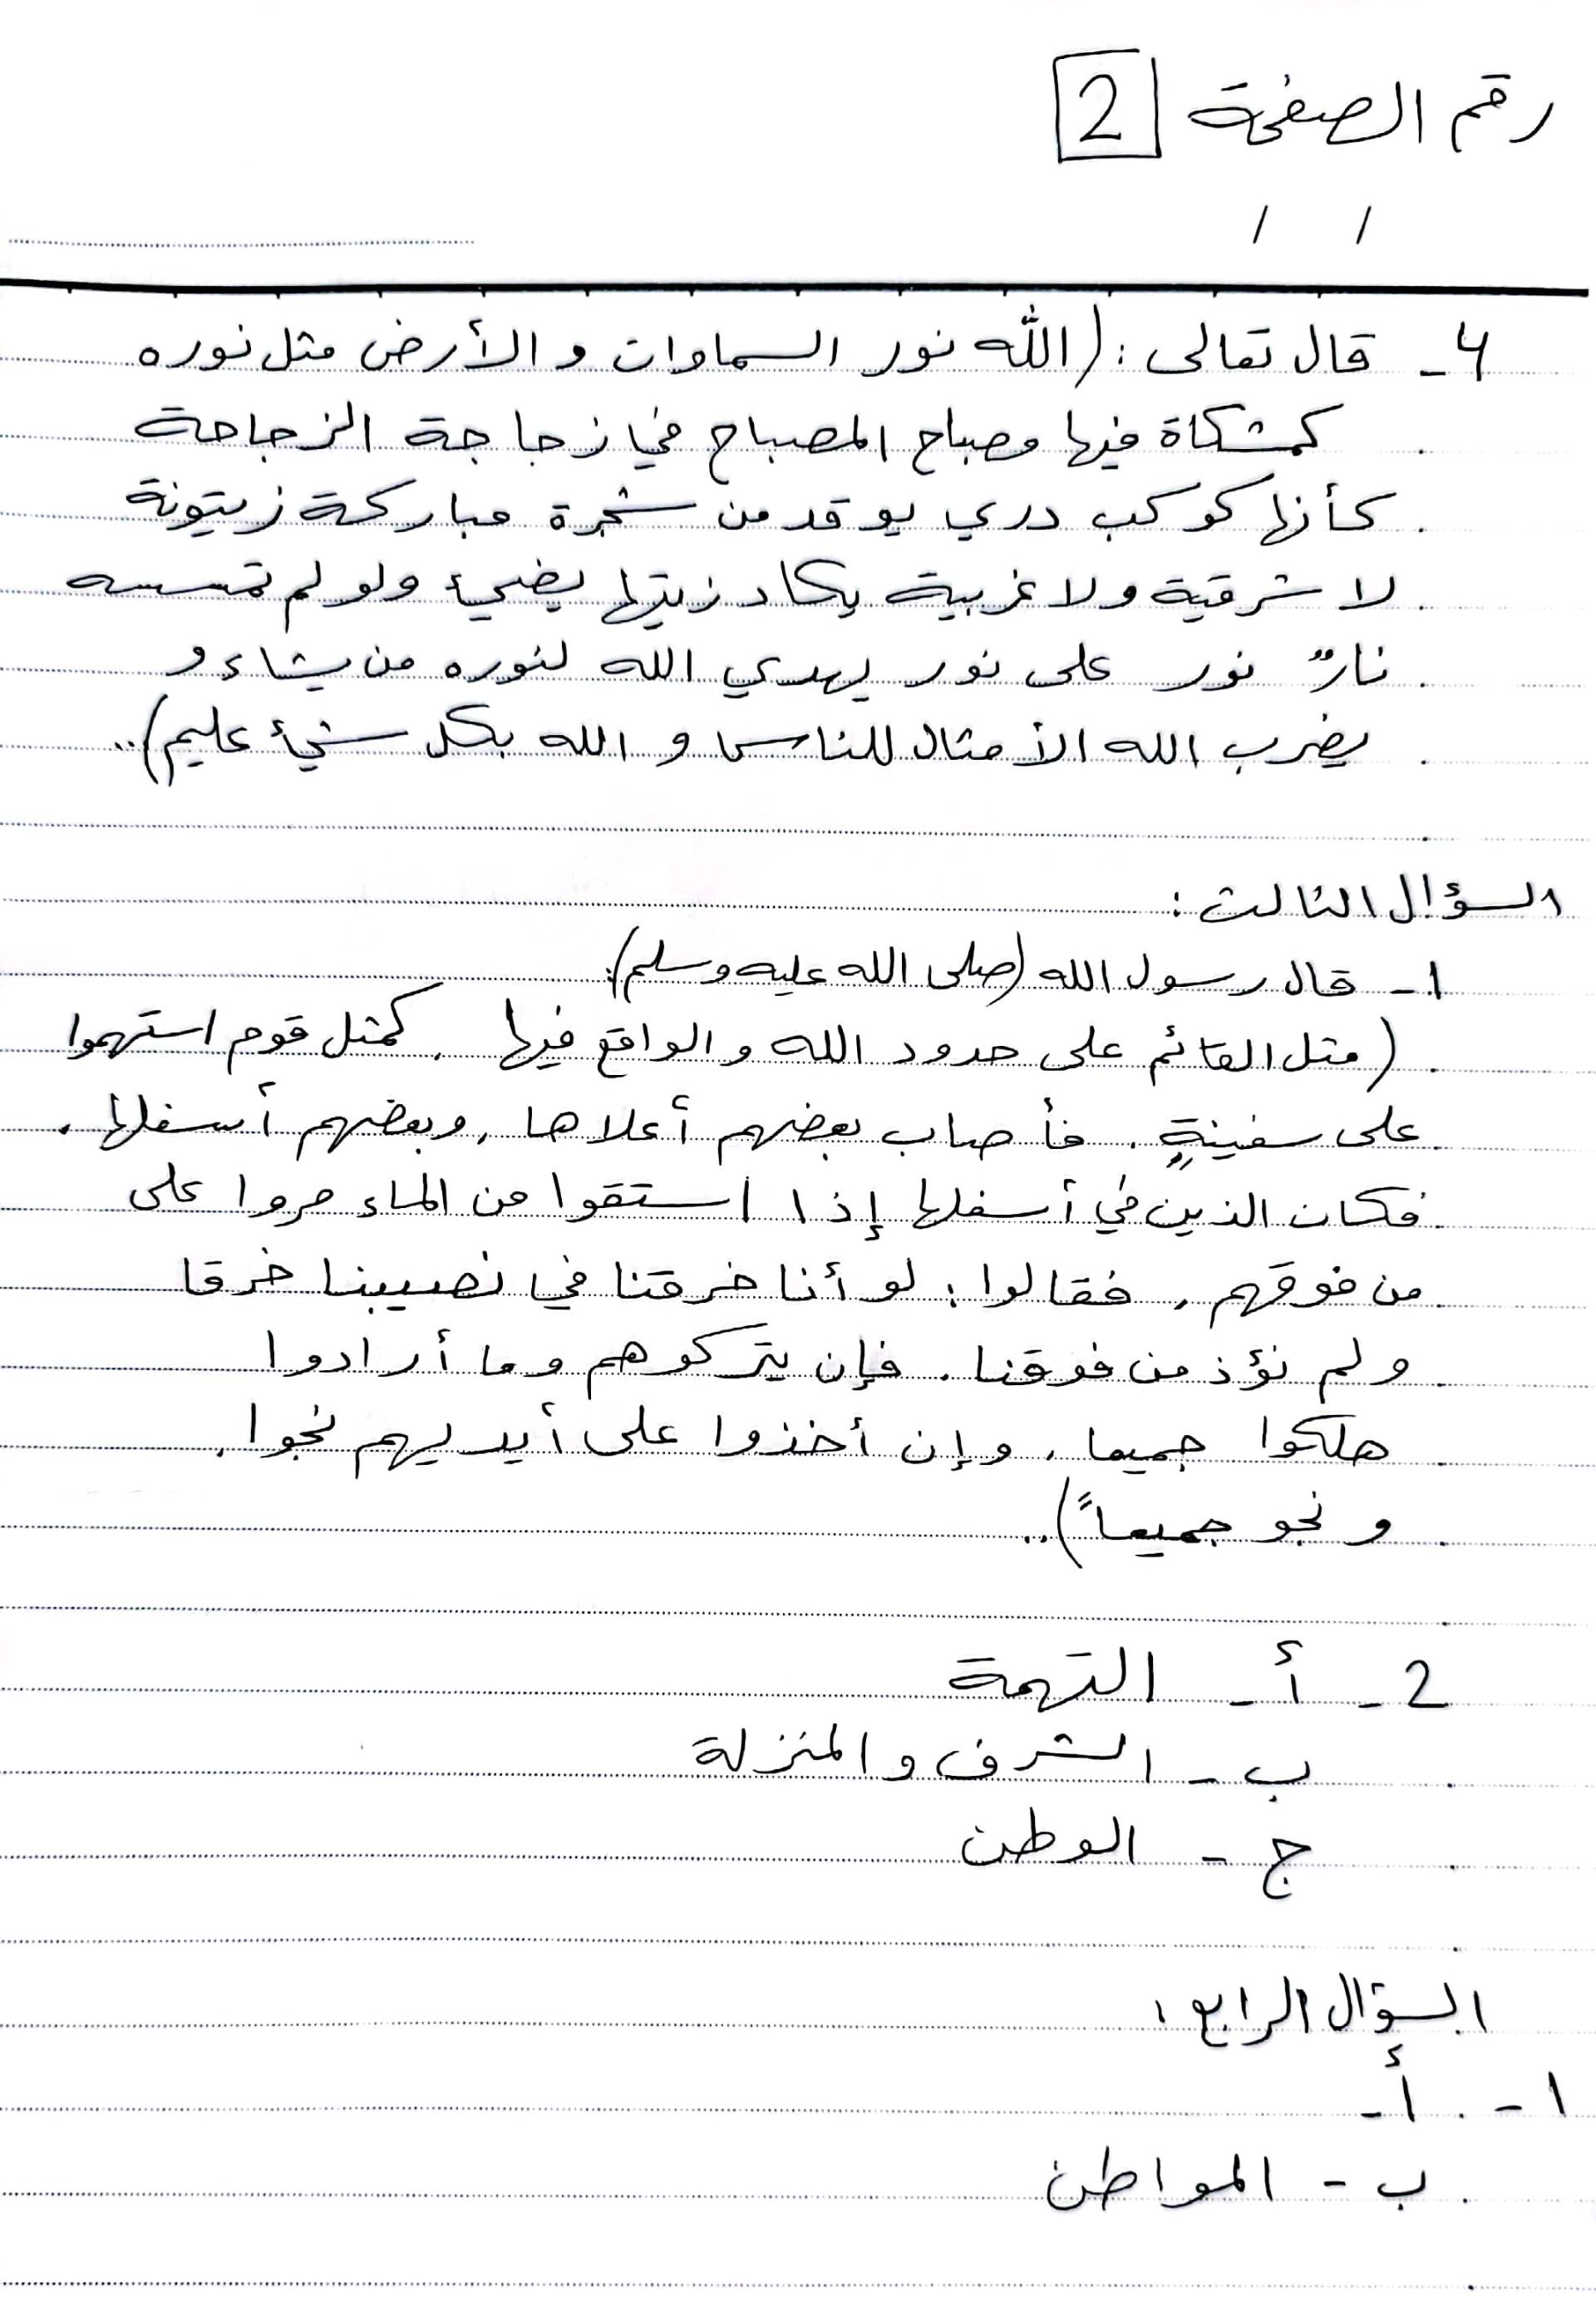 رقم الصفحة 2
/ /
4- قال تعالى: (الله نور السماوات والأرض مثل نوره
كمشكاة فيها مصباح المصباح في زجاجة الزجاجة
كأنها كوكب دري يوقد من شجرة مباركة زيتونة
لا شرقية ولا غربية يكاد زيتها يضيئ ولو لم تمسسه
نارٌ نور على نور يهدي الله لنوره من يشاء و
يضرب الله الأمثال للناس و الله بكل شيئ عليم)..
السؤال الثالث:
1- قال رسول الله (صلى الله عليه وسلم):
(مثل القائم على حدود الله والواقع فيها، كمثل قوم استهموا
على سفينةٍ، فأصاب بعضهم أعلاها، وبعضهم أسفلها،
فكان الذين في أسفلها إذا استقوا من الماء مروا على
من فوقهم، فقالوا: لو أنا خرقنا في نصيبنا خرقا
ولم نؤذ من فوقنا، فإن يتركوهم وما أرادوا
هلكوا جميعا، وإن أخذوا على أيديهم نجوا،
ونجو جميعاً)..
2- أ- التهمة
ب- الشرف والمنزلة
ج- الوطن
السؤال الرابع:
1- أ-
ب- المواطن